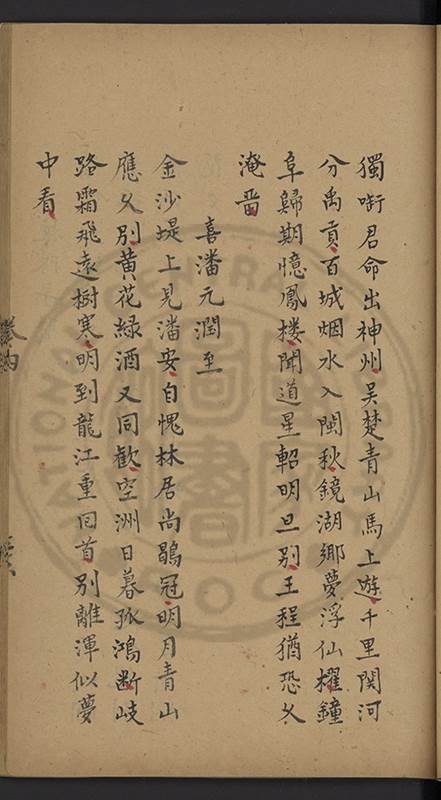 獨啣君命出神州吴楚青山馬上遊千里関河
分禹貢百城烟水入閩秋鏡湖鄉夢浮仙櫂鐘
阜歸期憶鳳楼聞道星軺明旦别王程猶恐久
淹畱
喜潘元潤至
金沙堤上見潘安自愧林居尚鶡冠明月青山
應久别黄花緑酒又同歡空洲日暮孤鴻断岐
路霜飛遠樹寒明到龍江重回首别離渾似夢
中看